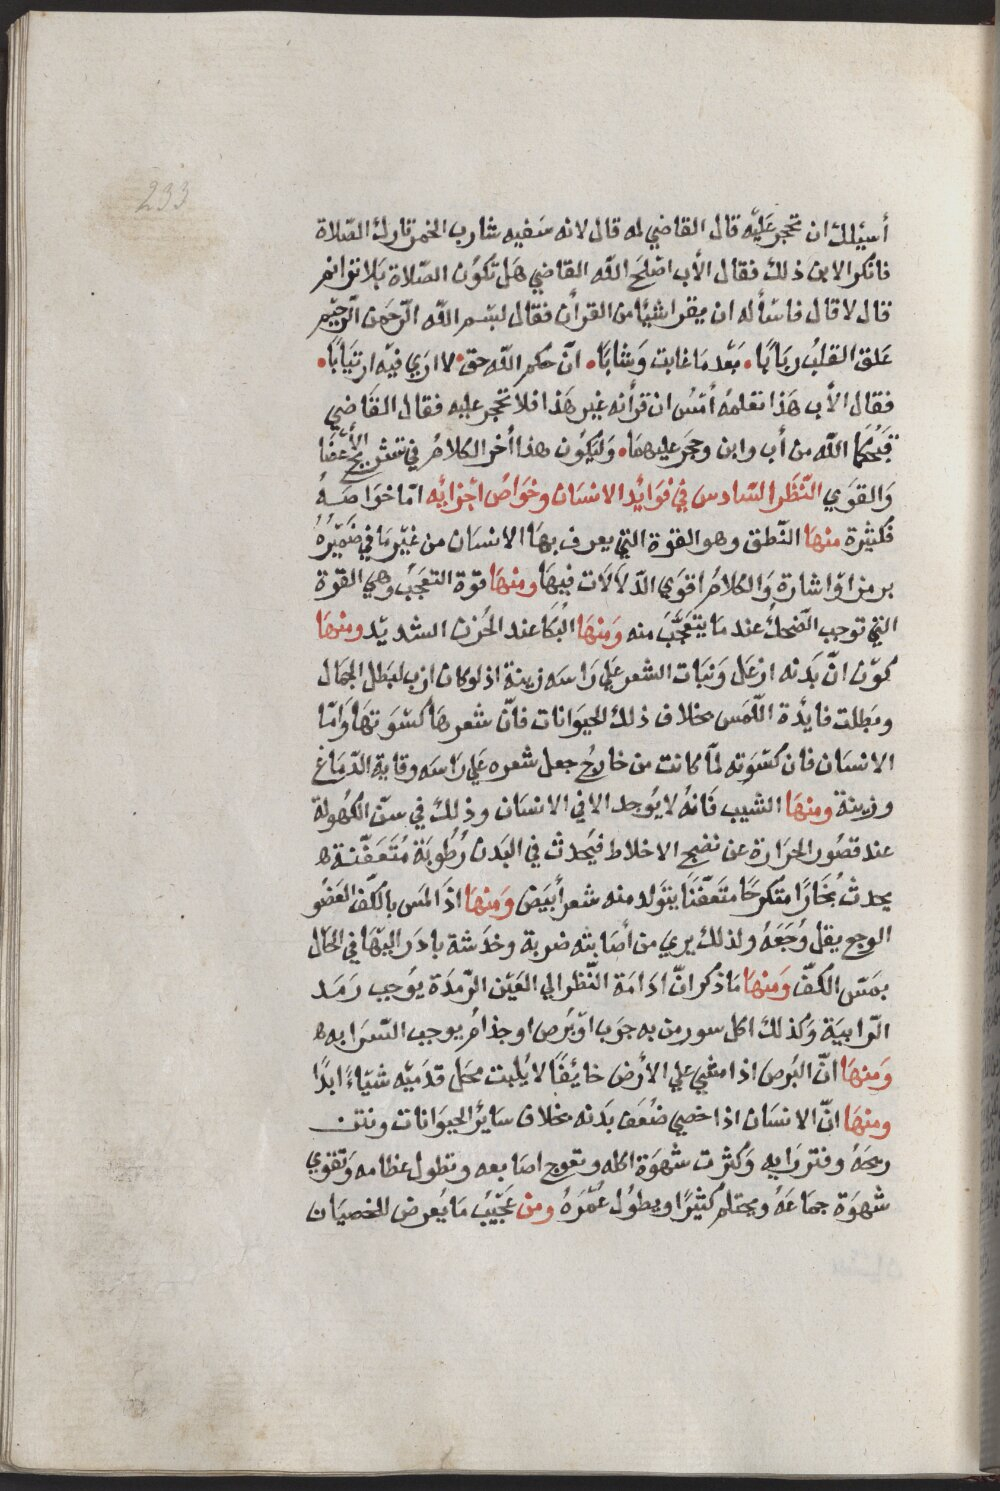 233
أسيلك ان تحجر عليه قال القاضي له قال لانه سفيه شارب الخمر تارك الصّلاة
فانكر الابن ذلك فقال الأب اصلح اللّه القاضي هل تكون الصّلاة بلا قرانهم
قال لا قال فاسأله ان يقرا شيًا من القرأن فقال لبسم اللّه الرّحمن الرّحيم
علق القلبُ ربَابًا • بَعْد مَا غابت وَشابَا • انّ حكم اللّه حق • لا ارَي فيْه ارتيَابَا •
فقال الأب هَذا تعلمهُ أمسُ ان قرأنه غير هَذا فلا تحجر عليه فقال القاضي
قبحكما اللّه من أب وابن وحجر عليهمَا • وَليَكُون هذا أخر الكلامُ في تشريح الأعْضَا
وَالقوَي النّظَر السّادس في فوَايْد الانسَان وخوَاصُ أجزايْه امّا خوَاصهُ
فكثيْرة منهَا النّطق وهو القوة التي يعرف بهَا الانسَان من غيْر مَا في ضميْرهُ
برمز اوْ اشارة وَالكلامُ اقوَي الدّلَالَات فيهَا ومنهَا قوّة التعجّب وهي القوّة
التي توجب الضّحك عند مَا يتَعَجّب منه وَمنهَا البُكَا عند الحُزن الشديْد ومنهَا
كوْن انّ بَدنه ازعَل وَنبَات الشعر علي رَاسَه زينة اذ لو كان ازب لبَطل الجمَال
وبَطلت فايْدة اللّمَس بخلاف ذلك الحيوَانات فانّ شعرهَا كسْوَتهَا وَامّا
الانسَان فان كسْوَته لمّا كانت من خارجُ جعل شعره علي رَاسَه وقاية الدّمَاغ
وزينة ومنهَا الشّيب فَانهُ لا يُوجد الا في الانسَان وذلك في سنّ الكهُولة
عند قصُور الحرَارة عن نضج الاخلاط فيَحدث في البَدن رُطُوبَة مُتَعَفّنَة ه
يحدثْ بُخارًا متكرحًا متعَفّنًا يتوَلد منه شعر أبيَض وَمنهَا اذَا لمَس بالكفّ العَضُو
الوجع يقل وُجَعَهُ ولذلك يري من أصَابته ضربة وخدشة بادَر اليْهَا في الحَال
بمَسّ الكفّ وَمنهَا مَا ذكر انّ ادَامَة النّظر الي العَيْن الرّمدَة يوُجب رَمَد
الرّابيَة وَكذلك اكل سور من به جرَب اوْ بَرَص او جذامُ يوجب السّرَابه ه
وَمنهَا انّ البَرص اذا مشي علي الأرض خايْفًا لا يُلبت محَل قدَميْه شيَاءً ابدًا
ومنهَا انّ الانسَان اذا خصي ضَعَف بَدنه بخلاف سَايرْ الحيوَانات ونتن
ريحَهُ وفتر رَايه وَكثرت شهوَة اكله وتعوج اصَابعه وتطول عظامه وَتقوي
شهوَة جمَاعَهُ ويحتلم كثيْرًا ويطولُ عُمْرَهُ ومن عَجِيْبُ مَا يُعرض للخصيَان